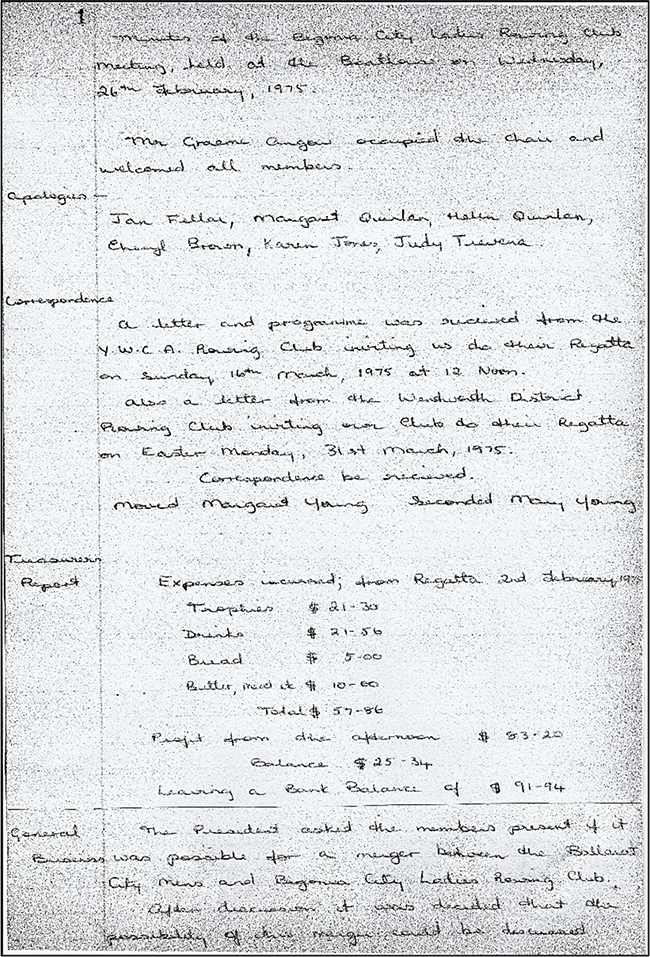 1
Minutes of the Begonia City Ladies Rowing Club
Meeting, held at the Boathouse on Wednesday,
26th February, 1975.
Mr Graeme Angow occupied the chair and
welcomed all members.
Apologies —
Jan Fellar, Margaret Quinlan, Helen Quinlan,
Cheryl Brown, Karen Jones, Judy Trevena.
Correspondence
A letter and programme was recieved from the
Y.W.C.A. Rowing Club inviting us to their Regatta
on Sunday 16th March, 1975 at 12 Noon.
Also a letter from the Wendworth District
Rowing Club inviting our Club to their Regatta
on Easter Monday, 31st March, 1975.
Correspondence be recieved.
Moved Margaret Young Seconded Mary Young
Treasurers
Report Expenses incurred; from Regatta 2nd February, 1975
Trophies $ 21-30
Drinks $ 21-56
Bread $ 5-00
Butter, meat etc $ 10-00
Total $ 57-86
Profit from the afternoon $ 83-20
Balance $ 25-34
Leaving a Bank Balance of $ 91-94
General The President asked the members present if it
Business was possible for a merger between the Ballarat
City Mens and Begonia City Ladies Rowing Club.
After discussion it was decided that the
possibility of this merger could be discussed